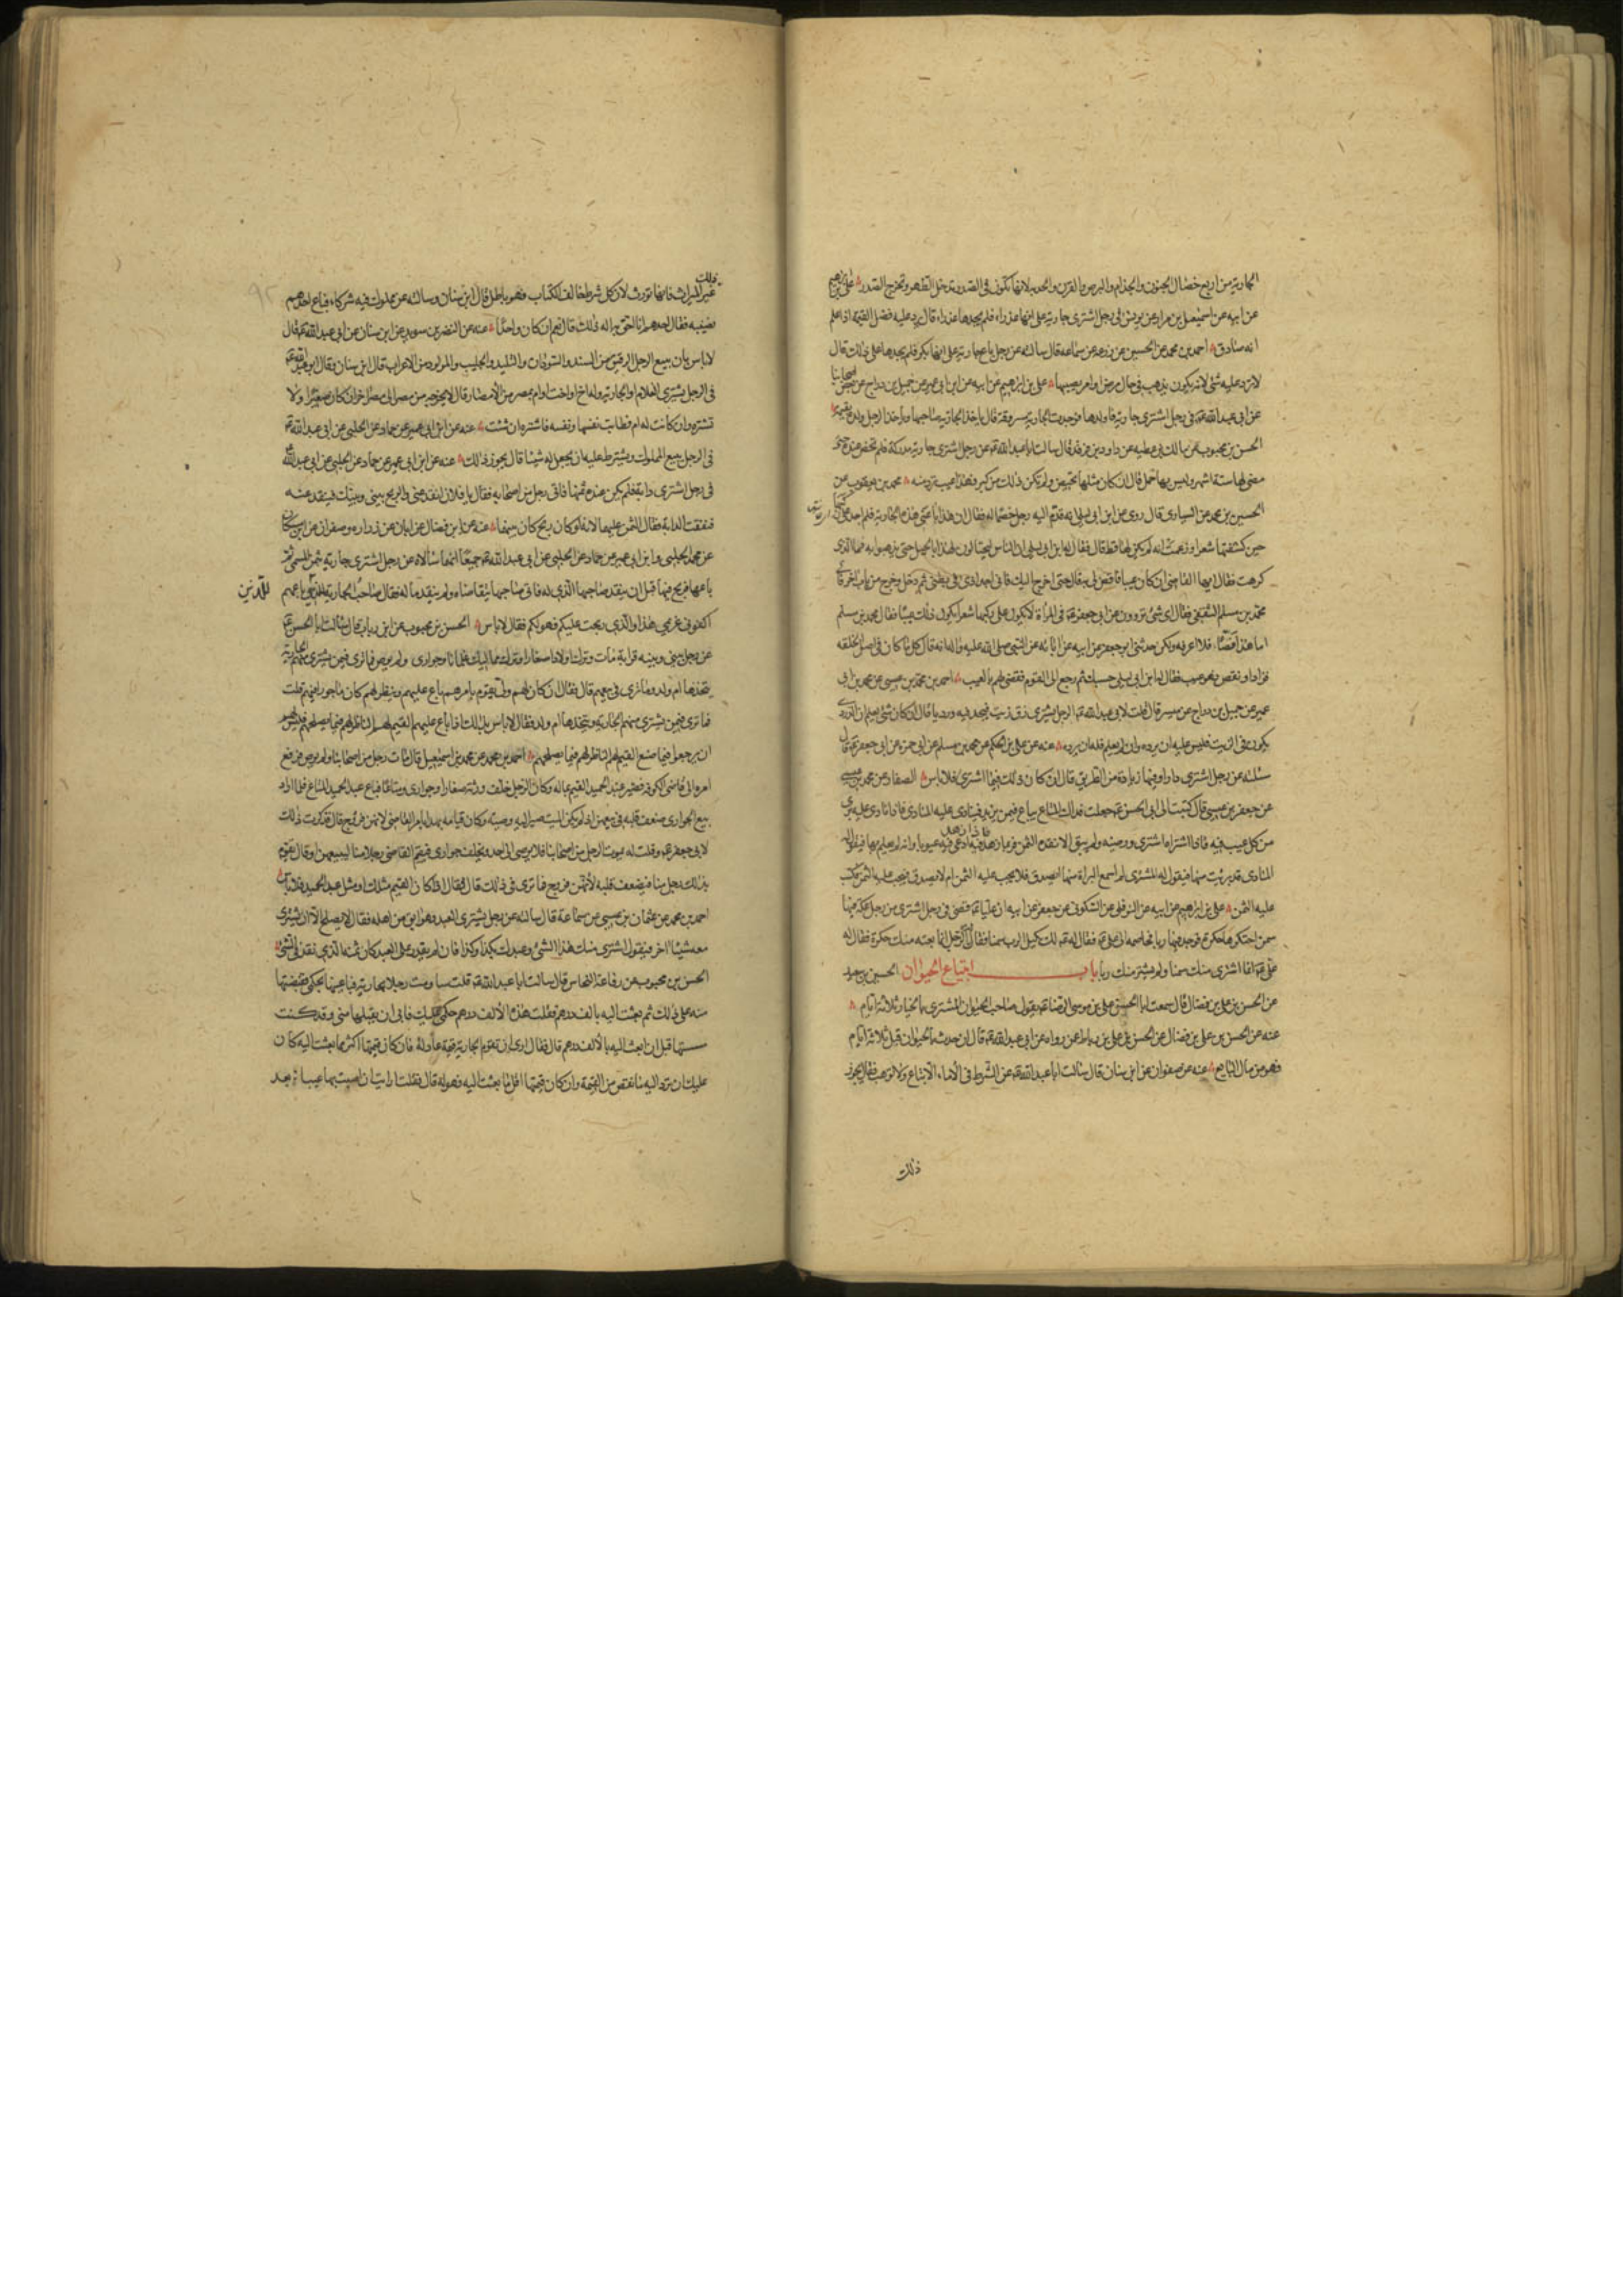 الجارية من اربع خصال الجنون والجذام والبرص والقرن والحدبه لانها تكون فى الصدر تدخل الظهر وتخرج الصدر على بن ابرهيم
عن ابيه عن اسمعيل بن مرار عن يونس فى رجل اشترى جارية على انها عذراء فلم يجدها عذراء قال يرد عليه فضل القيمة اذا علم
انه صادق احمد بن محمد عن الحسين عن زرعه عن سماعه قال سالته عن رجل باع جارية على انها بكر فلم يجدها على ذلك قال
لا ترد عليه شئ لانه يكون يذهب فى حال مرض او امر يصيبها على بن ابرهيم عن ابيه عن ابن ابى عمير عن جميل بن دراج عن بعض اصحابنا
عن ابى عبد الله ع فى رجل اشترى جارية فاولدها فوجدت الجارية مسروقة قال ياخذ الجارية صاحبها وياخذ الرجل ولده بقيمته
الحسن بن محبوب عن مالك بن عطيه عن داود بن فرقد قال سالت ابا عبد الله ع عن رجل اشترى جارية مدركة فلم تحض عنده حتى
مضى لها ستة اشهر وليس بها حمل قال ان كان مثلها تحيض ولم يكن ذلك من كبر فهذا عيب ترد منه محمد بن يعقوب عن
الحسين بن محمد عن السيارى قال روى عن ابن ابى ليلى انه قدم اليه رجل خصما له فقال ان هذا باعنى هذه الجارية فلم اجد على ركبها
حين كشفتها شعرا وزعمت انه لم يكن لها قط قال فقال له ابن ابى ليلى ان الناس ليحتالون لهذا بالحيل حتى يذهبوا به فما الذى
كرهت فقال ايها القاضى ان كان عيبا فاقض لى به قال حتى اخرج اليك فانى اجد اذى فى بطنى ثم دخل وخرج من باب اخر فاتى
محمد بن مسلم الثقفى فقال اى شئ تروون عن ابى جعفر ع فى المراة لا يكون على ركبها شعر ايكون ذلك عيبا فقال محمد بن مسلم
اما هذا نصا فلا اعرفه ولكن حدثنى ابو جعفر عن ابيه عن ابائه عن النبى صلى الله عليه واله انه قال كل ما كان فى اصل الخلقه
فزاد او نقص فهو عيب فقال له ابن ابى ليلى حسبك ثم رجع الى القوم فقضى لهم بالعيب احمد بن محمد بن عيسى عن محمد بن ابى
عمير عن جميل بن دراج عن ميسر قال قلت لابى عبد الله ع الرجل يشترى زق زيت فيجد فيه درديا قال ان كان شئ يعلم ان الدردى
يكون فى الزيت فليس عليه ان يرده وان لم يعلم فله ان يرده عنه عن على بن الحكم عن محمد بن مسلم عن ابى حمزه عن ابى جعفر ع قال
سئلته عن رجل اشترى دارا وفيها زيادة من الطريق قال ان كان ذلك فيما اشترى فلا باس الصفار عن محمد بن عيسى
عن جعفر بن عيسى قال كتبت الى ابى الحسن ع جعلت فداك المتاع يباع فيمن يزيد فينادى عليه المنادى فاذا نادى عليه برئ
من كل عيب فيه فاذا اشتراه المشترى ورضيه ولم يبق الا نقده الثمن فربما زهد فيه فاذا زهد فيه ادعى فيه عيوبا وانه لم يعلم بها فيقول له
المنادى قد برئت منها فيقول له المشترى لم اسمع البراة منها ايصدق فلا يجب عليه الثمن ام لا يصدق فيجب عليه الثمن فكتب
عليه الثمن على بن ابرهيم عن ابيه عن النوفلى عن السكونى عن جعفر عن ابيه ان عليا ع قضى فى رجل اشترى من رجل عكة فيها
سمن احتكرها حكرة فوجد فيها ربا فخاصمه الى على ع فقال له ع لك بكيل الرب سمنا فقال له الرجل انما بعته منك حكرة فقال له
على ع انما اشترى منك سمنا ولم يشتر منك ربا باب ابتياع الحيوان الحسين بن سعيد
عن الحسن بن على بن فضال قال سمعت ابا الحسن على بن موسى الرضا ع يقول صاحب الحيوان المشترى بالخيار ثلاثة ايام
عنه عن الحسن بن على بن فضال عن الحسن بن على بن رباط عن رواه عن ابى عبد الله ع قال ان حدث بالحيوان قبل ثلاثة ايام
فهو من مال البايع عنه عن صفوان عن ابن سنان قال سالت ابا عبد الله ع عن الشرط فى الاماء الا تباع ولا توهب فقال يجوز
ذلك
ذلك
غير الميراث فانها تورث لان كل شرط خالف الكتاب فهو باطل قال ابن سنان وسالته عن مملوك فيه شركاء فباع احدهم
نصيبه فقال احدهم انا احق به اله ذلك قال نعم ان كان واحدا عنه عن النضر بن سويد عن ابن سنان عن ابى عبد الله ع قال
فى الرجل يشترى الغلام او الجارية وله اخ او اخت او ام بمصر من الامصار قال لا يخرجه من مصر الى مصر اخر ان كان صغيرا ولا
تشتره وان كانت له ام فطابت نفسها ونفسه فاشتره ان شئت عنه عن ابن ابى عمير عن حماد عن الحلبى عن ابى عبد الله ع
فى الرجل يبيع المملوك ويشترط عليه ان يجعل له شيئا قال يجوز ذلك عنه عن ابن ابى عمير عن حماد عن الحلبى عن ابى عبد الله
فى رجل اشترى دابة فلم يكن عنده ثمنها فاتى رجل من اصحابه فقال يا فلان انقد عنى والربح بينى وبينك فينقد عنه
فنفقت الدابة فقال الثمن عليهما لانه لو كان ربح كان بينهما عنه عن ابن فضال عن ابان عن زراره وصفوان عن ابن مسكان
عن محمد الحلبى وابن ابى عمير عن حماد عن الحلبى عن ابى عبد الله ع جميعا انهما سالاه عن رجل اشترى جارية بثمن مسمى ثم
باعها فربح فيها قبل ان ينقد صاحبها الذى له فاتى صاحبها يتقاضاه ولم ينقد ماله فقال صاحب الجارية للذين باعهم
للذين
اكفونى غريمى هذا والذى ربحت عليكم فهو لكم فقال لا باس الحسن بن محبوب عن ابن رياب قال سالت ابا الحسن ع
عن رجل بينى وبينه قرابة مات وترك اولادا صغارا وترك مماليك غلمانا وجوارى ولم يوص فما ترى فيمن يشترى منهم الجارية
يتخذها ام ولد وما ترى فى بيعهم قال فقال ان كان لهم ولى يقوم بامرهم باع عليهم ونظر لهم كان ماجورا فيهم قلت
فما ترى فيمن يشترى منهم الجارية ويتخذها ام ولد فقال لا باس بذلك اذا باع عليهم القيم لهم الناظر لهم فيما يصلحهم فليس لهم
ان يرجعوا فيما صنع القيم لهم الناظر لهم فيما يصلحهم احمد بن محمد عن محمد بن اسمعيل قال مات رجل من اصحابنا ولم يوص فرفع
امره الى قاضى الكوفة فصير عبد الحميد القيم بماله وكان الرجل خلف ورثة صغارا وجوارى ومتاعا فباع عبد الحميد المتاع فلما اراد
بيع الجوارى ضعف قلبه فى بيعهن اذ لم يكن الميت صير اليه وصيته وكان قيامه بهذا بامر القاضى لانهن فروج قال فذكرت ذلك
لابى جعفر ع وقلت له يموت الرجل من اصحابنا فلا يوصى الى احد ويخلف جوارى فيقيم القاضى رجلا منا ليبيعهن او قال يقوم
بذلك رجل منا فيضعف قلبه لانهن فروج فما ترى فى ذلك قال فقال اذا كان القيم مثلك او مثل عبد الحميد فلا باس
احمد بن محمد عن عثمان بن عيسى عن سماعة قال سالته عن رجل يشترى العبد وهو ابق من اهله فقال لا يصلح الا ان يشترى
معه شيئا اخر فيقول اشترى منك هذا الشئ وعبدك بكذا وكذا فان لم يقدر على العبد كان ثمنه الذى نقد فى الشئ
الحسن بن محبوب عن رفاعة النخاس قال سالت ابا عبد الله ع قلت ساومت رجلا بجارية فباعنيها بحكمى فقبضتها
منه على ذلك ثم بعثت اليه بالف درهم فقلت هذه الالف درهم حكمى عليك فابى ان يقبلها منى وقد كنت
مسستها قبل ان ابعث اليه بالالف درهم قال فقال ارى ان تقوم الجارية قيمة عادلة فان كان قيمتها اكثر مما بعثت اليه كان
عليك ان ترد اليه ما نقص من القيمة وان كان قيمتها اقل مما بعثت اليه فهو له قال فقلت ارايت ان اصبت بها عيبا بعد